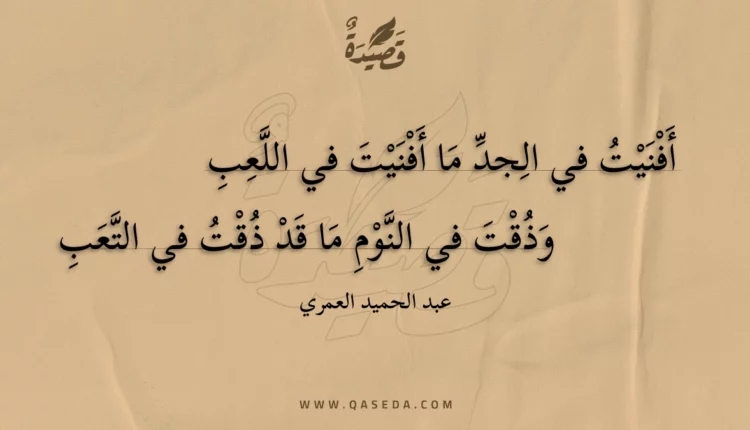 قَصِيْدَةٌ
أَفْنَيْتُ في الِجدِّ مَا أَفْنَيْتَ في اللَّعِبِ
وَذُقْتَ في النَّوْمِ مَا قَدْ ذُقْتُ في التَّعَبِ
عبد الحميد العمري
WWW.QASEDA.COM